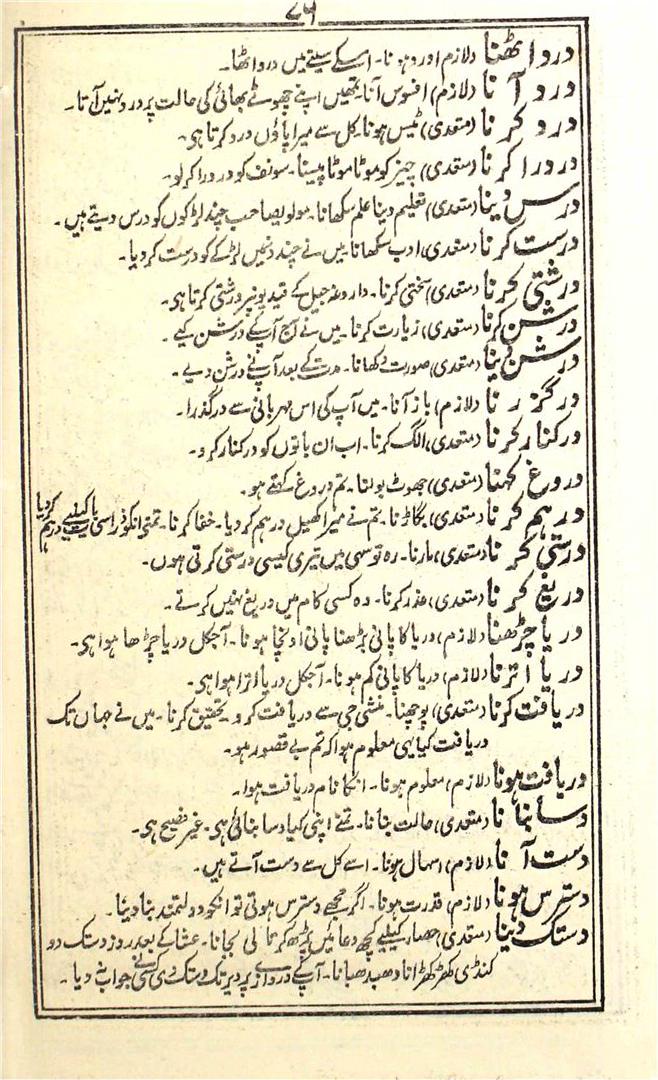 ۷۶
درد اٹھنا (لازم) درد ہونا۔ اسکے سینے میں درد اٹھا۔
درد آنا (لازم) افسوس آنا۔ تمھیں اپنے چھوٹے بھائی کی حالت پر درد نہیں آتا۔
درد کرنا (متعدی) ٹیس ہونا۔ کل سے میرا پاؤں درد کرتا ہی۔
دردرا کرنا (متعدی) چیز کو موٹا موٹا پیسنا۔ سونف کو دردرا کرلو۔
درس دینا (متعدی) تعلیم دینا علم سکھانا۔ مولویصاحب چند لڑکوں کو درس دیتے ہیں۔
درست کرنا (متعدی) ادب سکھانا۔ میں نے چند دنمیں لڑکے کو درست کردیا۔
درشتی کرنا (متعدی) سختی کرنا۔ داروغہ جیل کے قیدیونپر درشتی کرتا ہی۔
درشن کرنا (متعدی) زیارت کرنا۔ میں نے آج آپکے درشن کیے۔
درشن دینا (متعدی) صورت دکھانا۔ مدت کے بعد آپنے درشن دیے۔
درگزرنا (لازم) باز آنا۔ میں آپ کی اس مہربانی سے درگذرا۔
درکنار کرنا (متعدی) الگ کرنا۔ اب ان باتوں کو درکنار کرو۔
دروغ کہنا (متعدی) جھوٹ بولنا۔ تم دروغ کہتے ہو۔
درہم کرنا (متعدی) بگاڑنا۔ تم نے میرا کھیل درہم کردیا۔ خفا کرنا۔ تمنے انکو ذراسی بات کیلیے درہم کردیا
درستی کرنا (متعدی) مارنا۔ رہ تو سہی میں تیری کیسی درستی کرتی ہوں۔
دریغ کرنا (متعدی) عذر کرنا۔ وہ کسی کام میں دریغ نہیں کرتے۔
دریا چڑھنا (لازم) دریا کا پانی بڑھنا پانی اونچا ہونا۔ آجکل دریا چڑھا ہوا ہی۔
دریا اترنا (لازم) دریا کا پانی کم ہونا۔ آجکل دریا اترا ہوا ہی۔
دریافت کرنا (متعدی) پوچھنا۔ منشی جی سے دریافت کرو۔ تحقیق کرنا۔ میں نے جہاں تک
دریافت کیا یہی معلوم ہوا کہ تم بے قصور ہو۔
دریافت ہونا (لازم) معلوم ہونا۔ انکا نام دریافت ہوا۔
دسا بنانا (متعدی) حالت بنانا۔ تمنے اپنی کیا دسا بنائی ہی۔ غیر فصیح ہی۔
دست آنا (لازم) اسہال ہونا۔ اسے کل سے دست آتے ہیں۔
دسترس ہونا (لازم) قدرت ہونا۔ اگر مجھے دسترس ہوتی تو انکو دولتمند بنا دیتا۔
دستک دینا (متعدی) حصار کیلیے کچھ دعائیں پڑھ کر تالی بجانا۔ عشا کے بعد روز دستک دو
کنڈی کھڑکھڑانا دھبدھبانا۔ آپکے دروازے پر دیر تک دستک دی کسی نے جواب نہ دیا۔